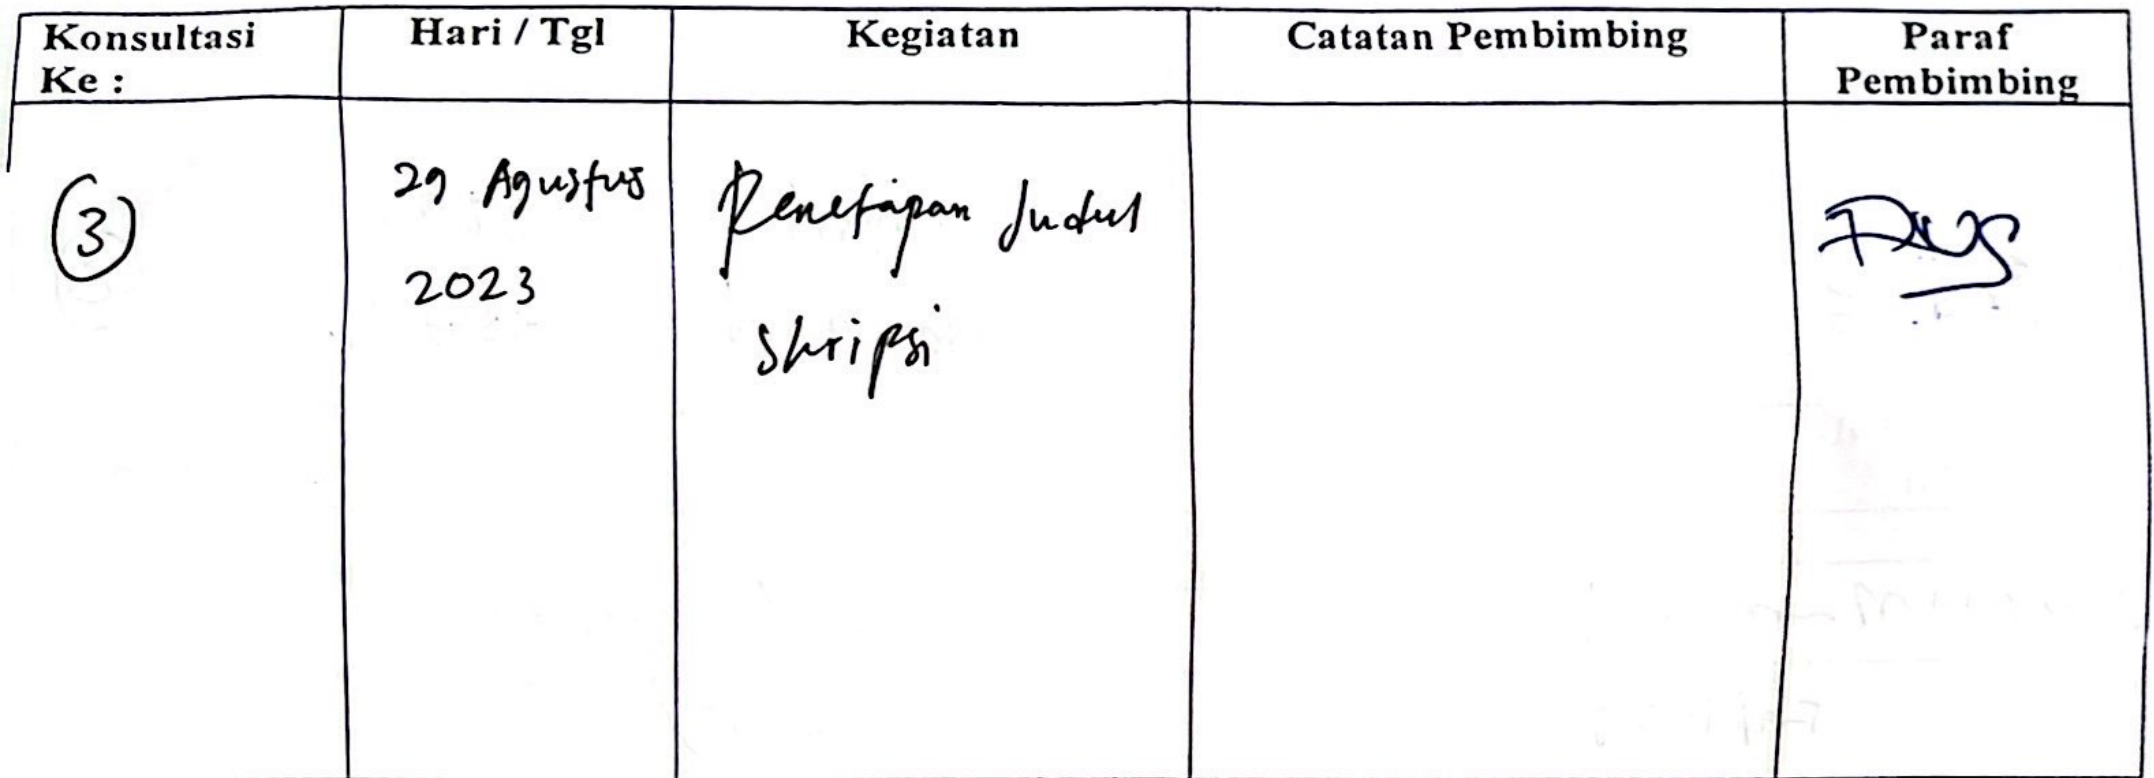 Konsultasi Ke :
Hari / Tgl
Kegiatan
Catatan Pembimbing
Paraf Pembimbing
3
29 Agustus
2023
Penetapan Judul
Skripsi